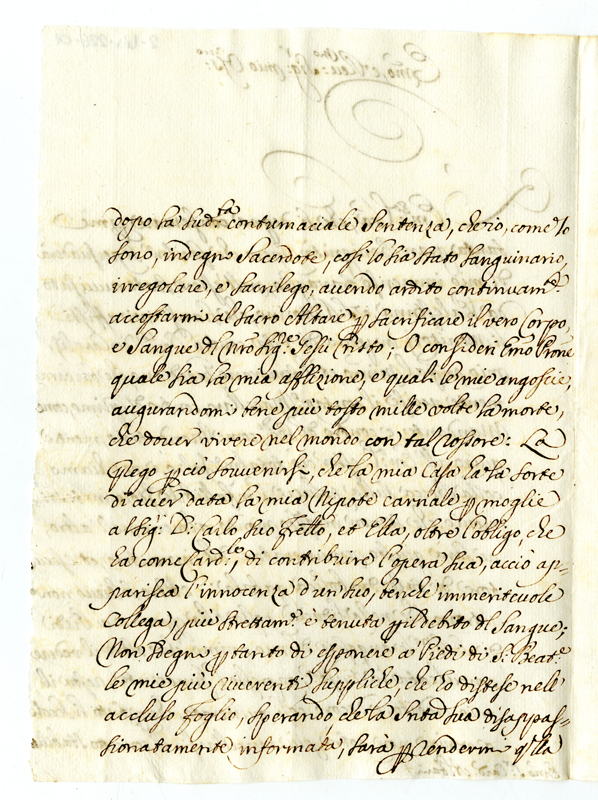 dopo la sud.ta contumaciale Sentenza, che io, come lo
sono, indegno Sacerdote, così lo sia stato sanguinario,
irregolare, e sacrilego, avendo ardito continuam.te
accostarmi al sacro Altare p sacrificare il vero Corpo,
e Sangue dl Nro Sig.re Gesù Cristo; O consideri Emo Prone
quale sia la mia afflizione, e quali le mie angoscie,
augurandomi bene più tosto mille volte la morte,
che dover vivere nel mondo con tal rossore: La
Prego p ciò souvenirsi, che la mia Casa ha la sorte
di aver data la mia Nipote carnale p moglie
al Sig.r D: Carlo, suo Frello, et Ella, oltre l'obligo, che
ha come Card.le, di contribuire l'opera sua, acciò ap=
parisca l'innocenza d'un suo, benche immeritevole
Collega, più strettam.te è tenuta p il debito dl Sangue;
Non sdegni p tanto di esponere a Piedi di S. Beat.e
le mie più riverenti suppliche, che ho distese nell'
accluso Foglio, sperando che la Sntà Sua disappas=
sionatamente informata, sarà p rendermi qlla